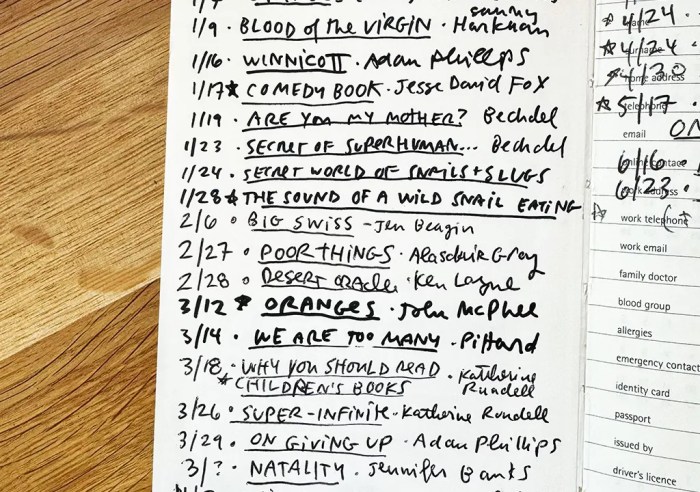 sammy
1/9 · BLOOD of the VIRGIN · Harkham
1/16 · WINNICOTT · Adam Phillips
1/17 ★ COMEDY BOOK · Jesse David Fox
1/19 · ARE YOU MY MOTHER? Bechdel
1/23 · SECRET OF SUPERHUMAN... Bechdel
1/24 · SECRET WORLD OF SNAILS + SLUGS
1/28 ★ THE SOUND OF A WILD SNAIL EATING
2/6 · BIG SWISS - Jen Beagin
2/27 · POOR THINGS · Alasdair Gray
2/28 · Desert oracle · Ken Layne
3/12 ★ ORANGES · John McPhee
3/14 · WE ARE TOO MANY · Pittard
3/18 · WHY YOU SHOULD READ · Katherine
★ CHILDREN'S BOOKS Rundell
3/26 · SUPER-INFINITE · Katherine Rundell
3/29 · ON GIVING UP · Adam Phillips
3/? · NATALITY · Jennifer Banks
★ 4/24 ·
★ 4/24 ·
home address
★ 5/17 ·
telephone
email ON
6/16 ·
6/23 ·
☆ work telephone
work email
family doctor
blood group
allergies
emergency contact
identity card
passport
issued by
driver's licence